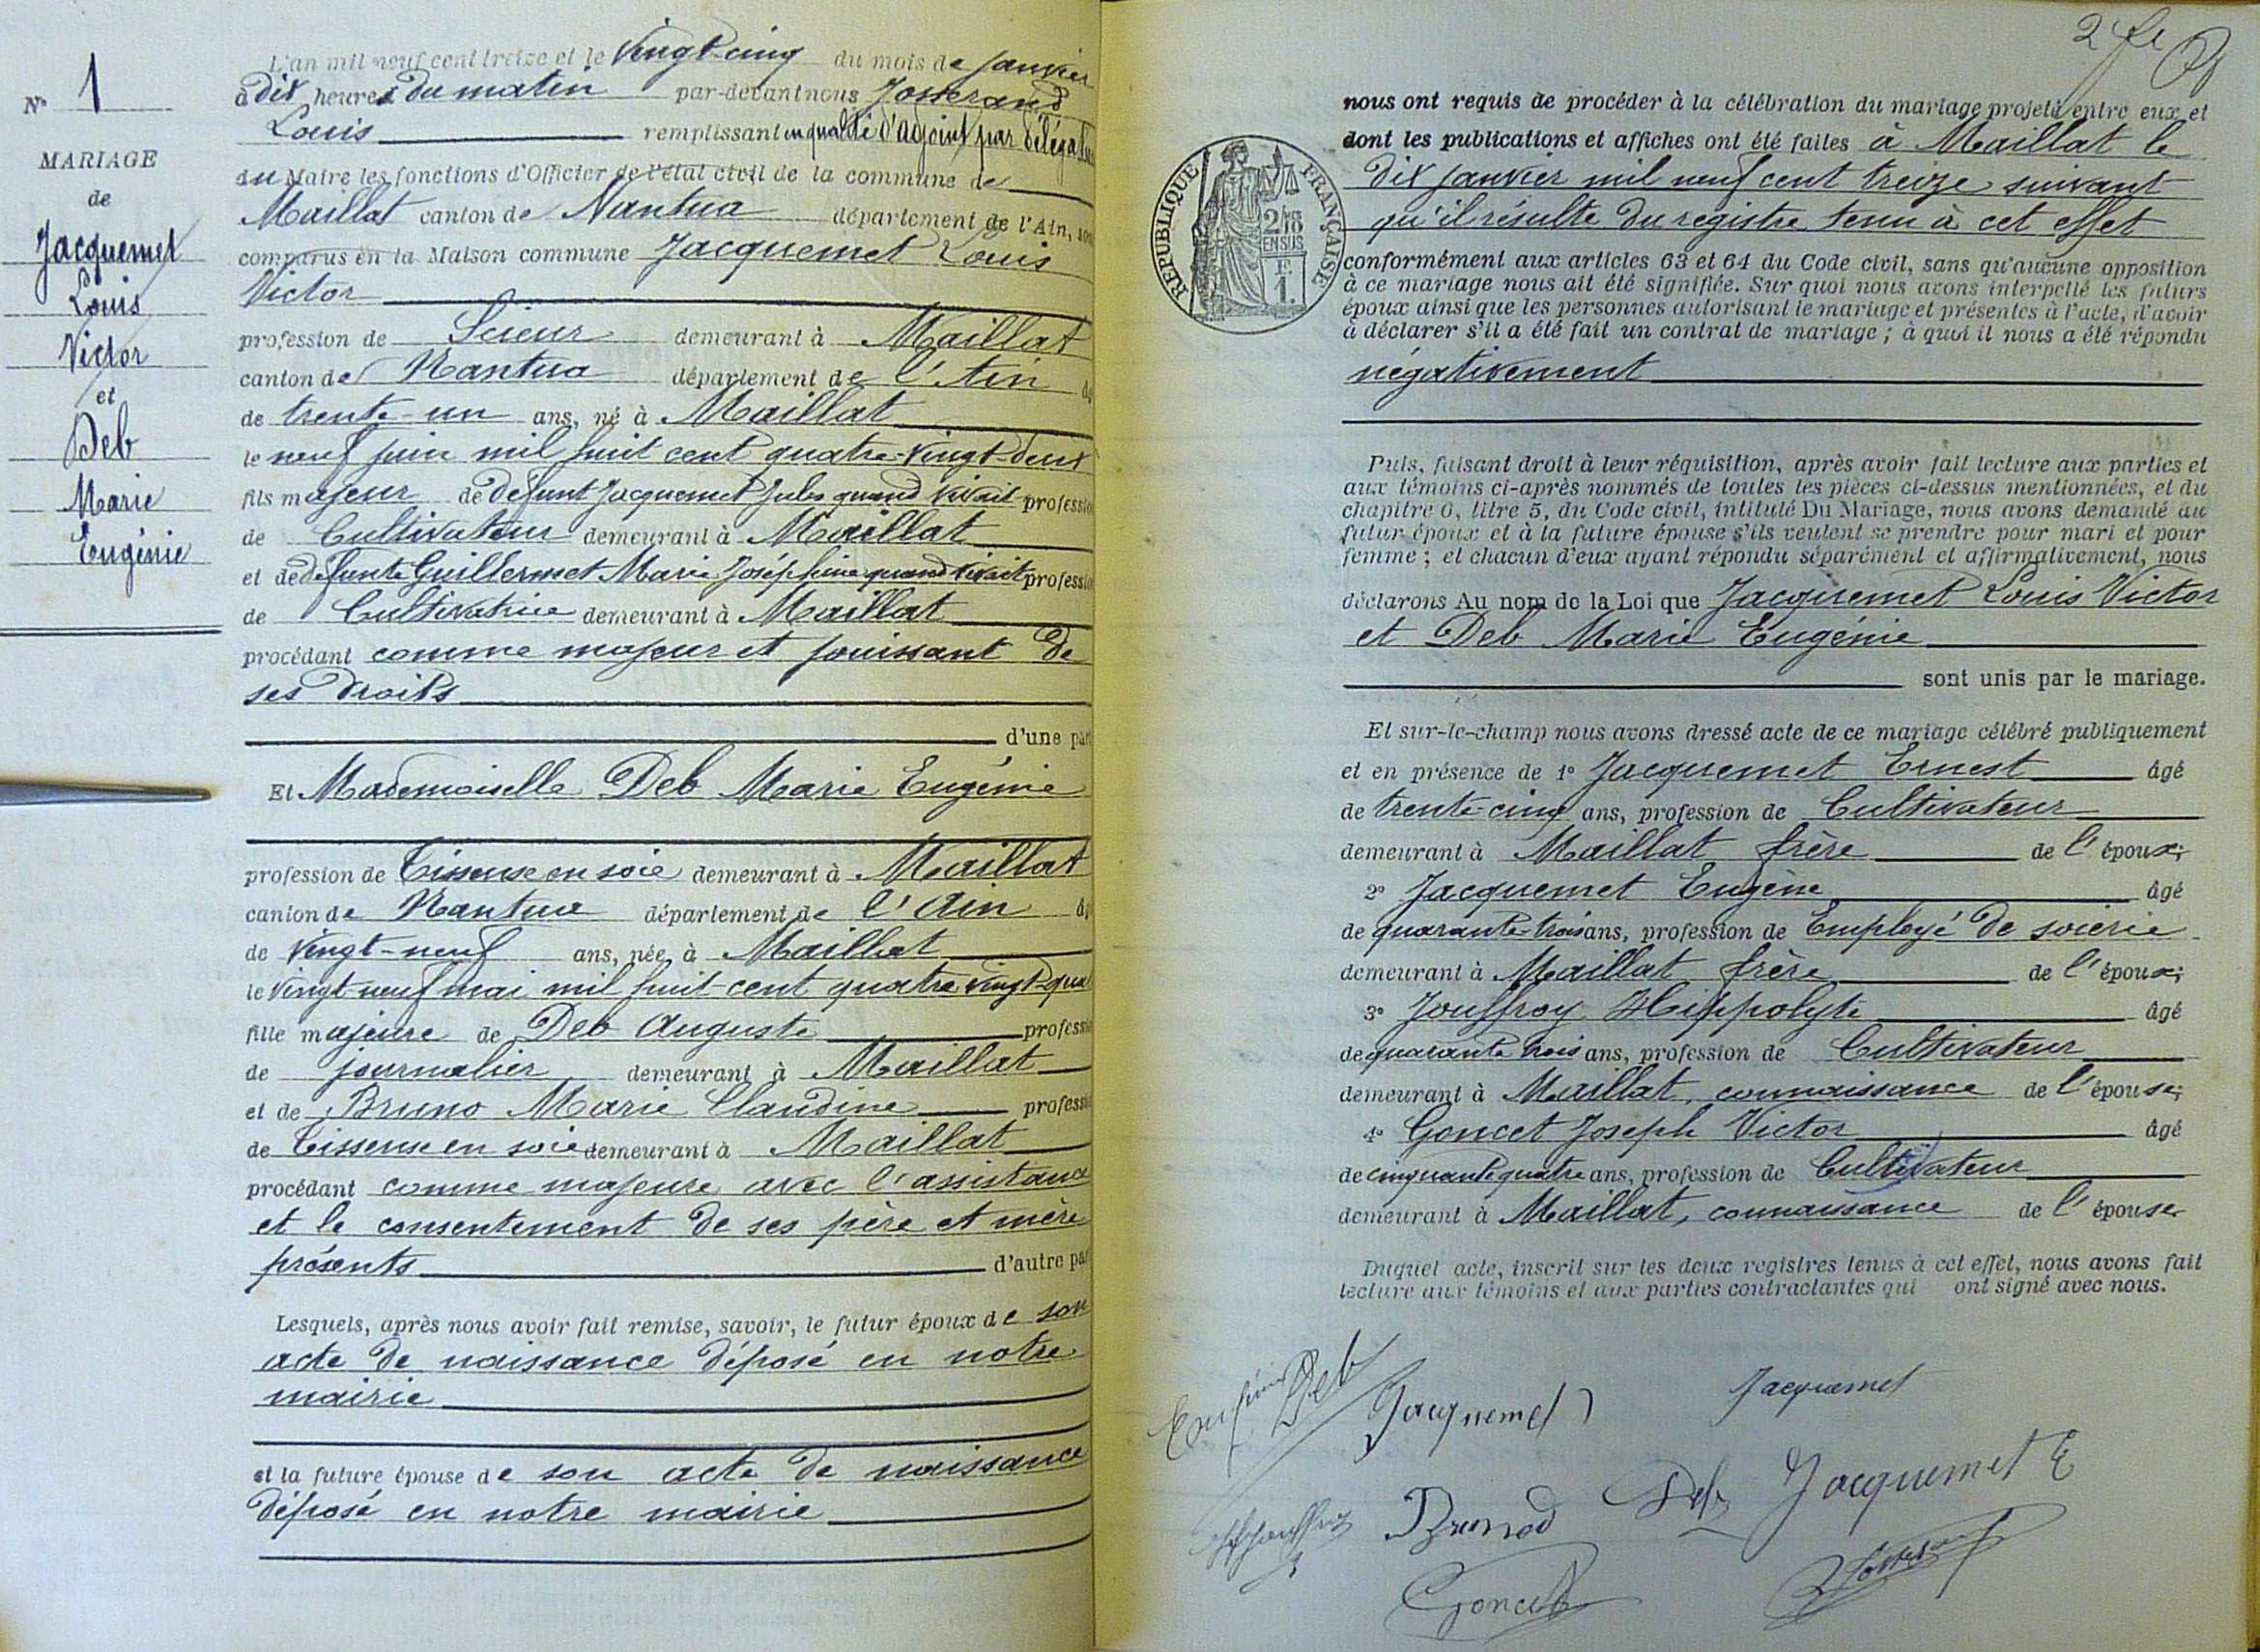 N° 1
MARIAGE
de
Jacquemet
Louis
Victor
et
Deb
Marie
Eugénie
L'an mil neuf cent treize et le vingt-cinq du mois de janvier
à dix heures du matin par-devant nous Josserand
Louis remplissant en qualité d'adjoint par délégation
du Maire les fonctions d'Officier de l'état civil de la commune de
Maillat canton de Nantua département de l'Ain, sont
comparus en la Maison commune Jacquemet Louis
Victor
profession de Scieur demeurant à Maillat
canton de Nantua département de l'Ain âgé
de trente-un ans, né à Maillat
le neuf juin mil huit cent quatre-vingt-deux
fils majeur de défunt Jacquemet Jules quand vivait profession
de Cultivateur demeurant à Maillat
et de défunte Guillermet Marie Joséphine quand vivait profession
de Cultivatrice demeurant à Maillat
procédant comme majeur et jouissant de
ses droits
d'une part
Et Mademoiselle Deb Marie Eugénie
profession de Tisseuse en soie demeurant à Maillat
canton de Nantua département de l'Ain âgé
de vingt-neuf ans, née à Maillat
le vingt neuf mai mil huit-cent quatre vingt-quat
fille majeure de Deb Auguste profession
de journalier demeurant à Maillat
et de Bruno Marie Claudine profession
de Tisseuse en soie demeurant à Maillat
procédant comme majeure avec l'assistance
et le consentement de ses père et mère
présents d'autre part
Lesquels, après nous avoir fait remise, savoir, le futur époux de son
acte de naissance déposé en notre
mairie
et la future épouse de son acte de naissance
déposé en notre mairie
2 fe
nous ont requis de procéder à la célébration du mariage projeté entre eux et
dont les publications et affiches ont été faites à Maillat le
dix janvier mil neuf cent treize suivant
qu'il résulte du registre tenu à cet effet
RÉPUBLIQUE FRANÇAISE
2/10
EN SUS
F.
1.
conformément aux articles 63 et 64 du Code civil, sans qu'aucune opposition
à ce mariage nous ait été signifiée. Sur quoi nous avons interpellé les futurs
époux ainsi que les personnes autorisant le mariage et présentes à l'acte, d'avoir
à déclarer s'il a été fait un contrat de mariage ; à quoi il nous a été répondu
négativement
Puis, faisant droit à leur réquisition, après avoir fait lecture aux parties et
aux témoins ci-après nommés de toutes les pièces ci-dessus mentionnées, et du
chapitre 6, titre 5, du Code civil, intitulé Du Mariage, nous avons demandé au
futur époux et à la future épouse s'ils veulent se prendre pour mari et pour
femme ; et chacun d'eux ayant répondu séparément et affirmativement, nous
déclarons Au nom de la Loi que Jacquemet Louis Victor
et Deb Marie Eugénie
sont unis par le mariage.
Et sur-le-champ nous avons dressé acte de ce mariage célébré publiquement
et en présence de 1° Jacquemet Ernest âgé
de trente-cinq ans, profession de Cultivateur
demeurant à Maillat frère de l'époux;
2° Jacquemet Eugène âgé
de quarante-trois ans, profession de Employé de soierie
demeurant à Maillat frère de l'époux;
3° Jouffroy Hippolyte âgé
de quarante trois ans, profession de Cultivateur
demeurant à Maillat, connaissance de l'épouse;
4° Goncet Joseph Victor âgé
de cinquante quatre ans, profession de Cultivateur
demeurant à Maillat, connaissance de l'épouse
Duquel acte, inscrit sur les deux registres tenus à cet effet, nous avons fait
lecture aux témoins et aux parties contractantes qui ont signé avec nous.
Eugénie Deb Jacquemet Jacquemet
H Jouffroy Brunod Deb Jacquemet E
Goncet Josserand